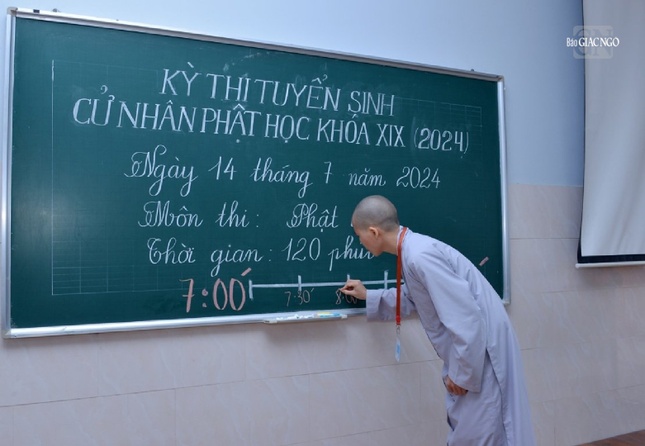 Báo GIÁC NGỘ
KỲ THI TUYỂN SINH
CỬ NHÂN PHẬT HỌC KHÓA XIX (2024)
Ngày 14 tháng 7 năm 2024
Môn thi: Phật
Thời gian: 120 phút
7:00'
7:30'